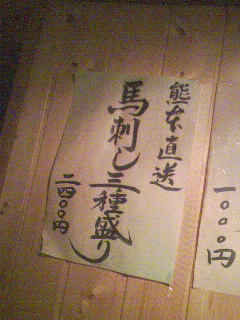 熊本直送
馬刺し三種盛り
二四〇〇円
一〇〇〇円